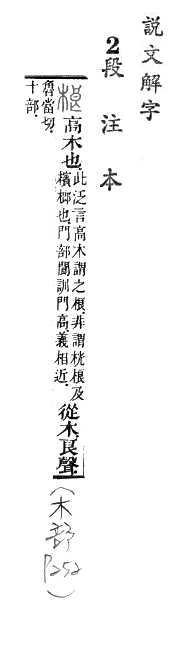 説文解字
2段注本
桹
高木也.此泛言高木謂之桹.非謂桄桹及
檳榔也.門部閬訓門高.義相近.從木.良聲.
魯當切.
十部.
(木部
P252)